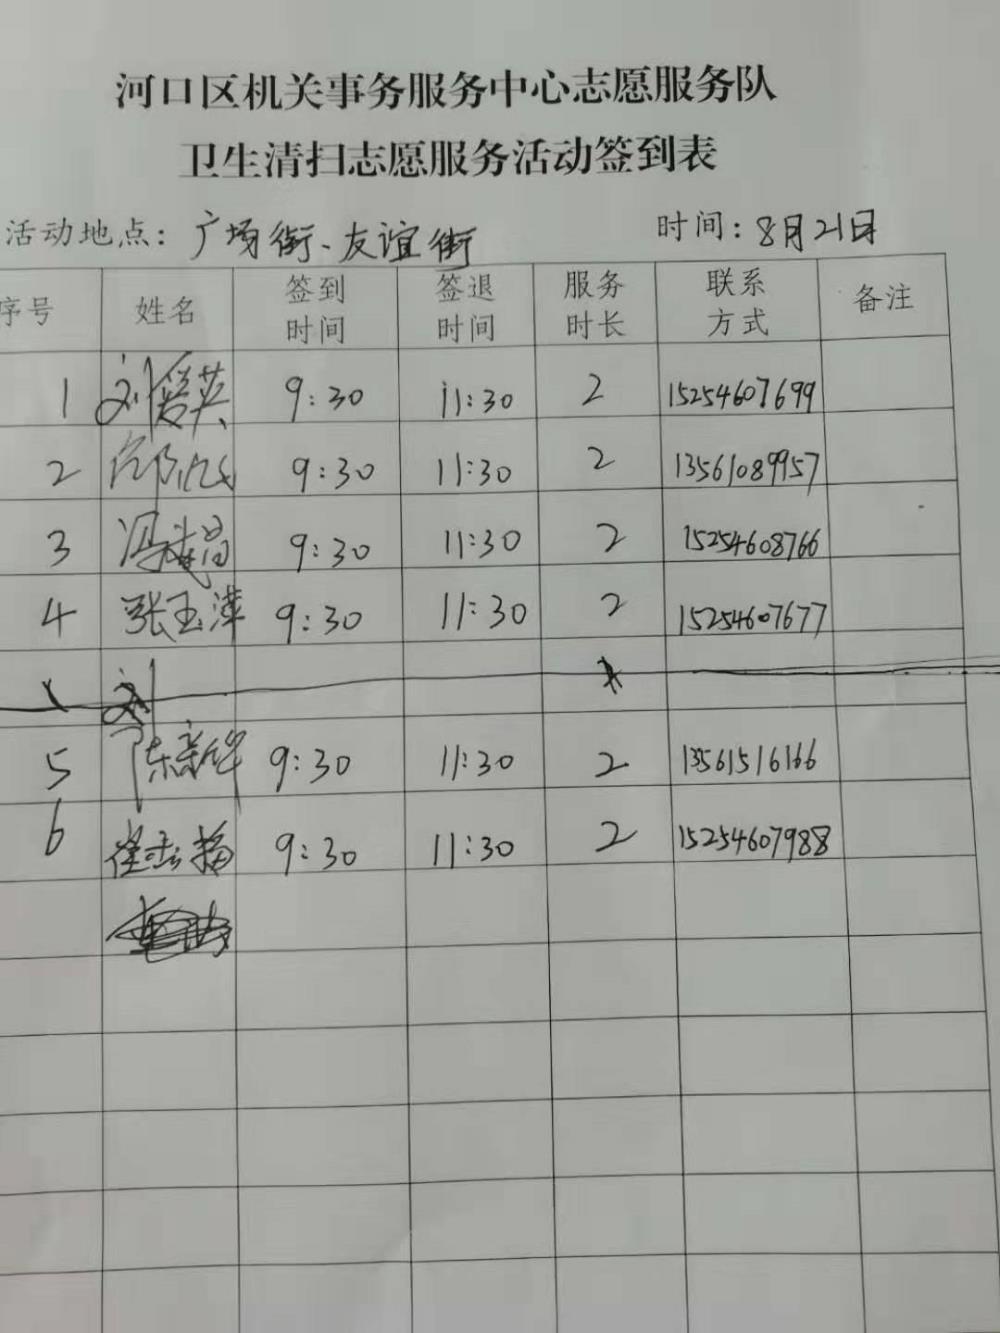 河口区机关事务服务中心志愿服务队
卫生清扫志愿服务活动签到表
活动地点：广场街、友谊街 时间：8月21日
序号 姓名 签到时间 签退时间 服务时长 联系方式 备注
1 刘爱英 9:30 11:30 2 15254607699
2 9:30 11:30 2 13561089957
3 冯 9:30 11:30 2 15254608766
4 张玉萍 9:30 11:30 2 15254607677
刘
5 陈新华 9:30 11:30 2 13561516166
6 崔 9:30 11:30 2 15254607988